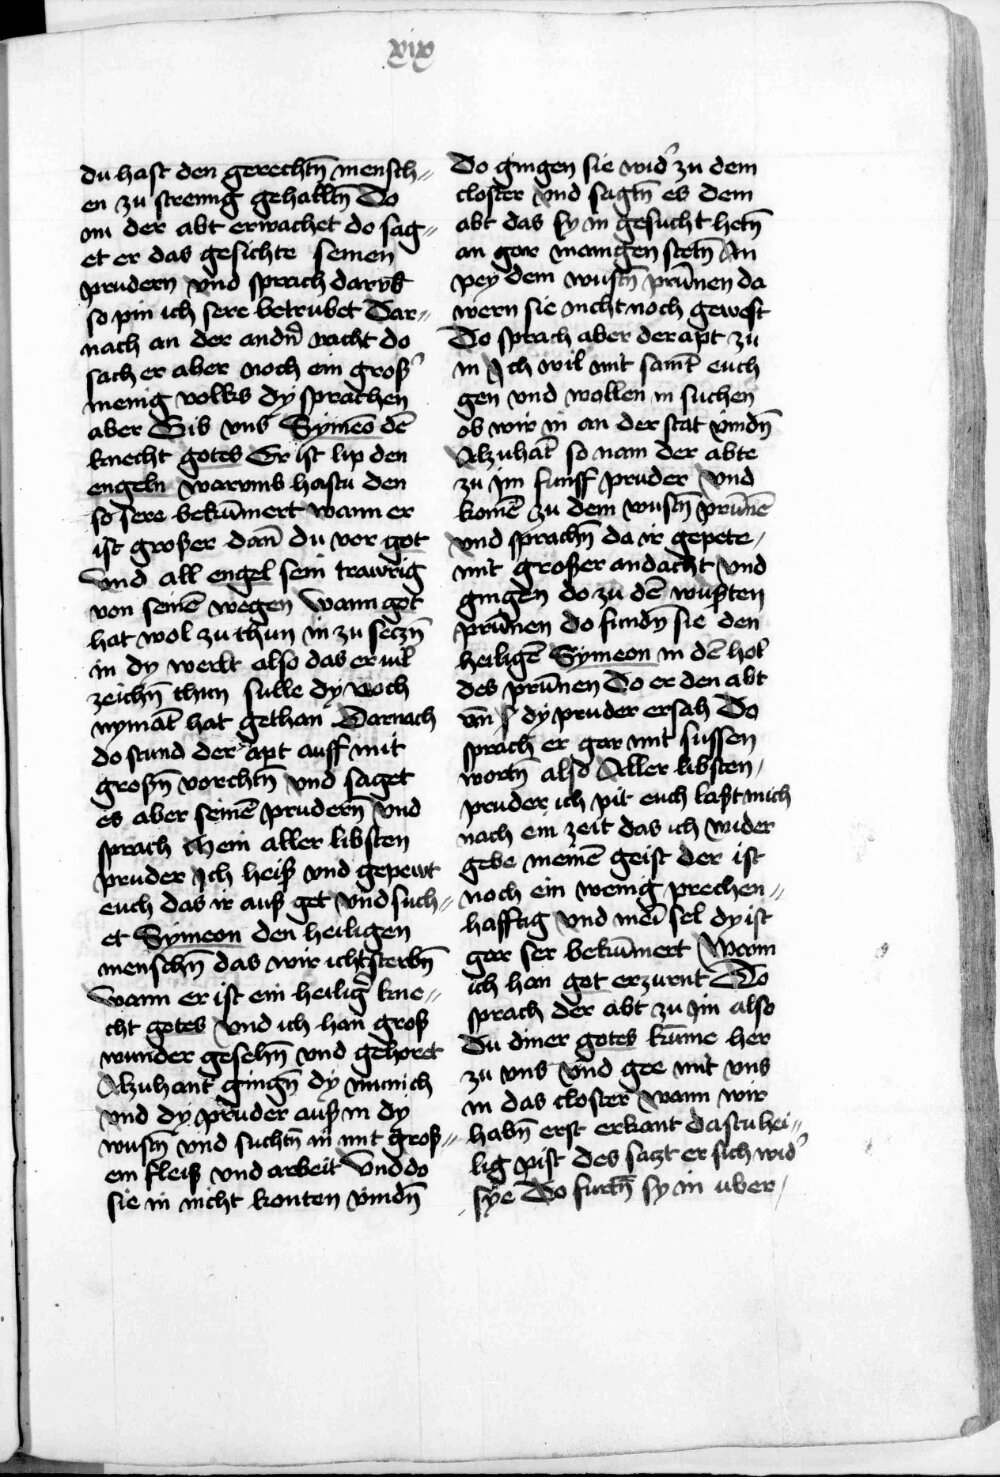 xix
du hast den gerechtn̄ mensch⸗
en zu strenng gehalltn̄ Do
nu der abt erwachet do sag⸗
et er das gesichte seinen
prudern vnd sprach darvb̄
so pin ich sere betrubet Dar⸗
nach an der andn̄ nacht do
sach er aber noch ein groß
menig volks dy sprachen
aber Gib vns Symeō dē
knecht gotes Er ist lip den
engeln warvmb hastu den
so sere bekūmert wann er
ist großer dan̄ du vor got
Vnd all engel sein trawrig
von seinē wegen Wann got
hat wol zu thun in zu seczn̄
in dy werlt also das er uil
zeichn̄ thun sulle dy noch
nymāt hat gethan Darnach
do stund der apt auff mit
großn̄ vorchtn̄ vnd saget
es aber seinē prudern̄ vnd
sprach Mein aller libsten
pruder Ich heiß vnd gepewt
euch das ir auß get vnd such⸗
et Symeon den heiligen
menschn̄ das wir icht sterbn̄
Wann er ist ein heilig̓ kne⸗
cht gotes Vnd ich han groß
wunder gesehn̄ vnd gehoret
Alzuhant gingn̄ dy munich
vnd dy pruder auß in dy
wustn̄ vnd suchtn̄ in mit groß⸗
em fleiß vnd arbeit Vnd do
sie in nicht konten vindn̄
Do gingen sie wid̓ zu dem
closter vnd sagtn̄ es dem
abt das sy in gesucht hetn̄
an gar manigen stetn̄ An
pey dem wustn̄ prūnen da
wern sie nicht noch gewest
Do sprach aber der apt zu
in Ich wil mit samt euch
gen vnd wollen in suchen
ob wir in an der stat vindn̄
Alzuhāt so nam der abte
zu im funff pruder Vnd
komē zu dem wustn̄ prūnē
vnd sprachn̄ da ir gepete
mit großer andacht Vnd
gingen do zu dē wusten
prūnen do fundn̄ sie den
heiligē Symeon in dē hol
des prūnen Do er den abt
vn̄ dy pruder ersah Do
sprach er gar mit sussen
wortn̄ also Aller libsten
pruder ich pit euch laßt mich
nach ein zeit das ich wider
gebe meinē geist der ist
noch ein wenig prechen⸗
hafftig Vnd mei̅ sel dy ist
gar ser bekūmert Wann
ich han got erzurnt Do
sprach der abt zu im also
Du diner gotes kūme her
zu vns vnd gee mit vns
in das closter wann wir
habn̄ erst erkant dastu hei⸗
lig pist des saczt er sich wid̓
sye Do furtn̄ sy in vber